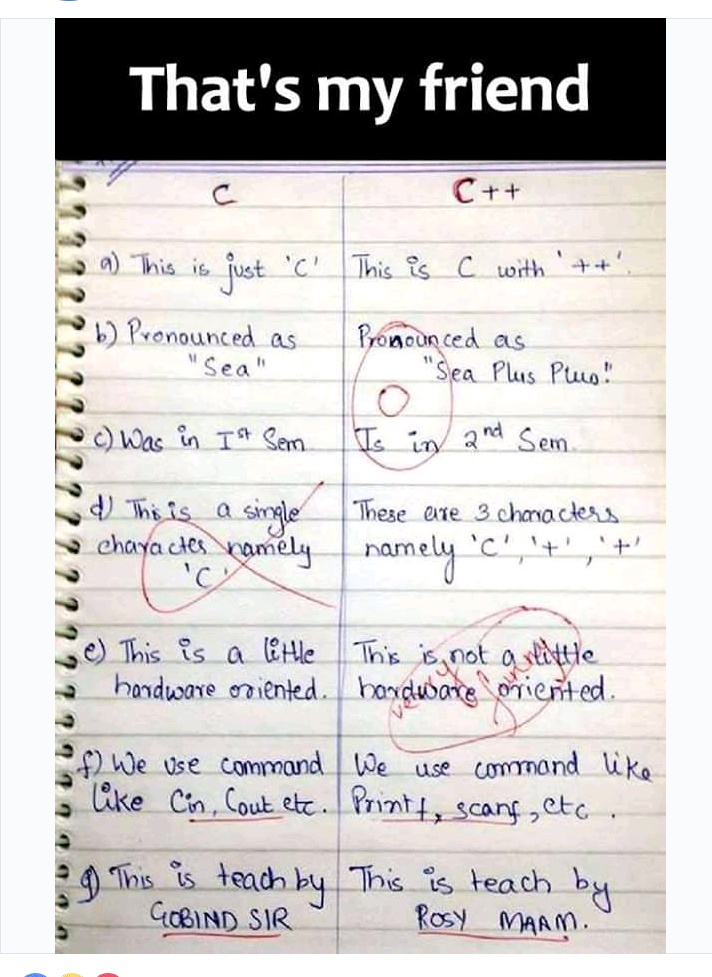 That's my friend
C
C++
a) This is just 'C'
This is C with '++'.
b) Pronounced as
"Sea"
Pronounced as
"Sea Plus Plus."
c) Was in Ist Sem
Is in 2nd Sem.
d) This is a single
character namely
'C'
These are 3 characters
namely 'C', '+', '+'
e) This is a little
hardware oriented.
This is not a little
hardware oriented.
very funny
f) We use command
like Cin, Cout etc.
We use command like
Printf, scanf, etc.
g) This is teach by
GOBIND SIR
This is teach by
ROSY MAAM.
0